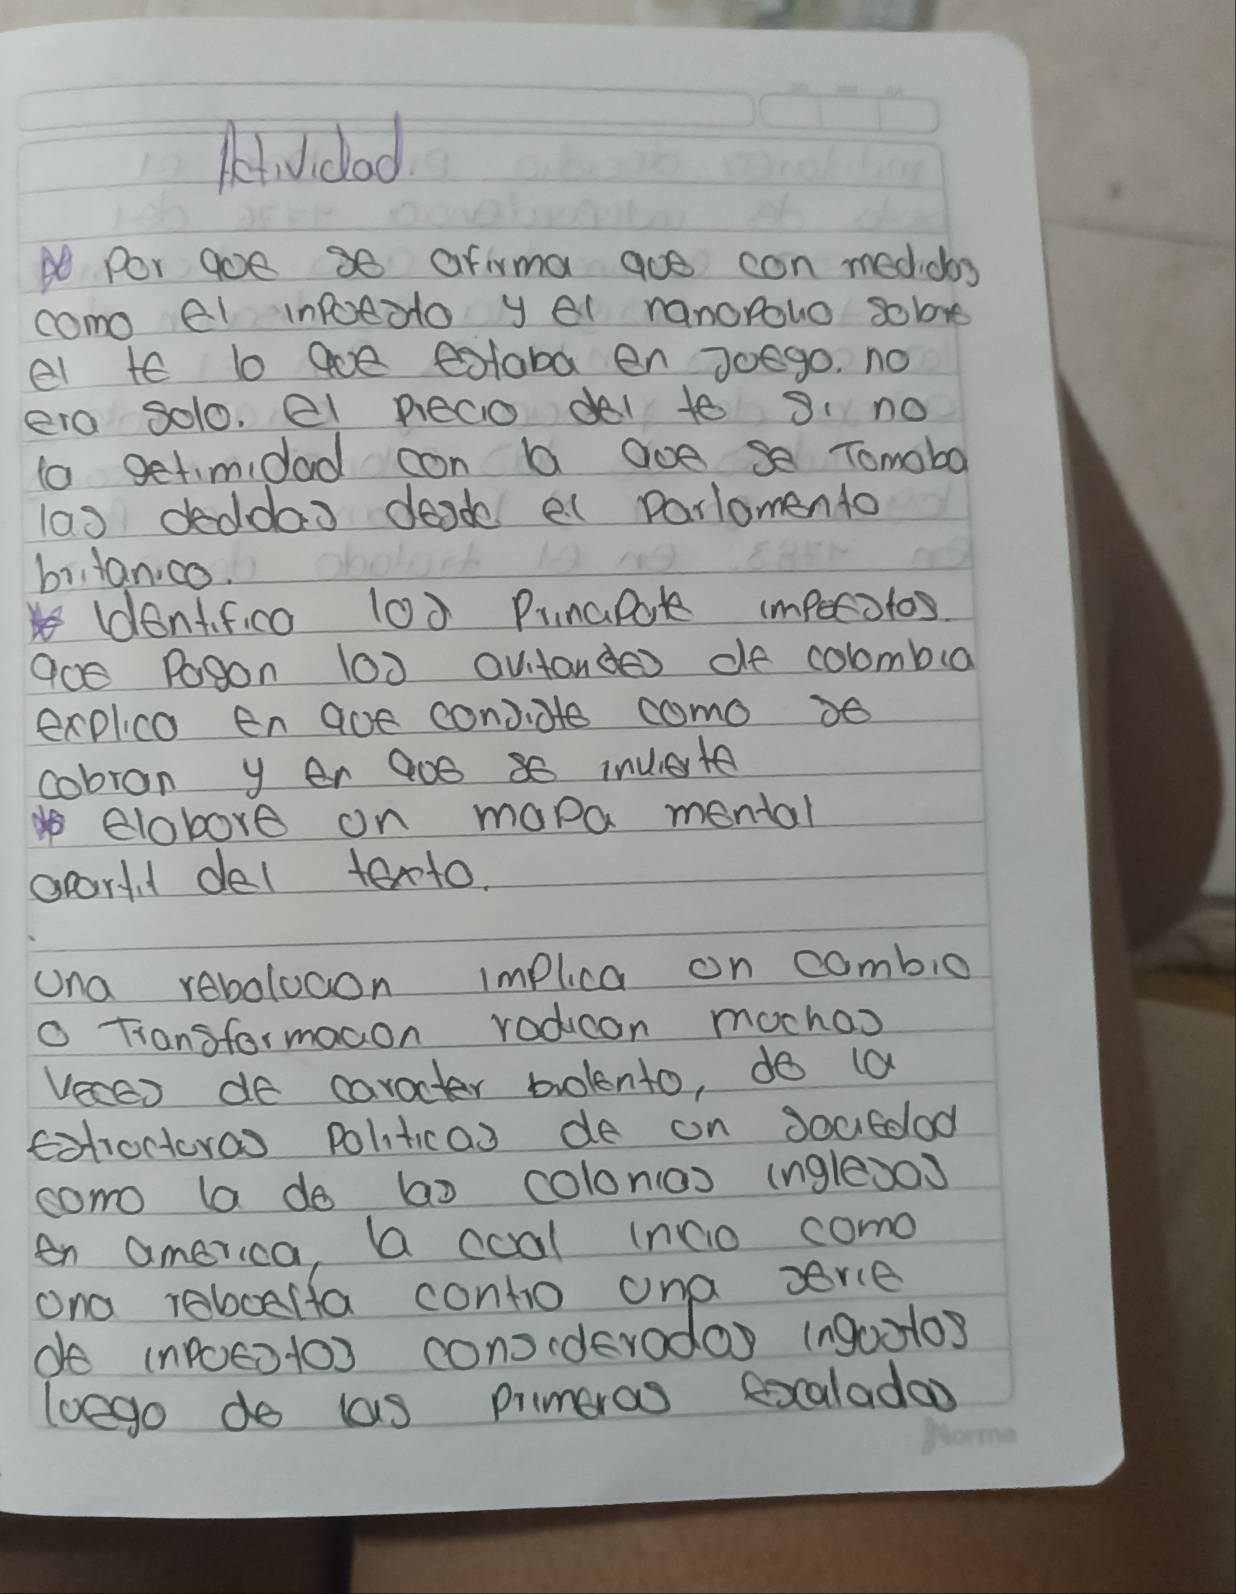 Actividad
Por que se afirma que con medidas
como el inpuesto y el nanopolio sobre
el te lo que estaba en juego. no
era solo. el precio del te si no
la getimidad con la que se Tomaba
las dedidas desde el Parlamento
britanico.
Identifico los Principale impuestos
que Pagan los avitandes de colombia
explico en que consiste como se
cobran y en que se invierte
elabore un mapa mental
apartil del texto.
una rebolucion implica un cambio
o Transformacion radican muchas
Veces de caracter biolento, de la
estructuras Politicas de un sociedad
como la de las colonias inglesas
en america, la cual inicio como
una rebuelta contra una serie
de inpuestos considerados ingustos
luego de las primeras escaladas
Norma